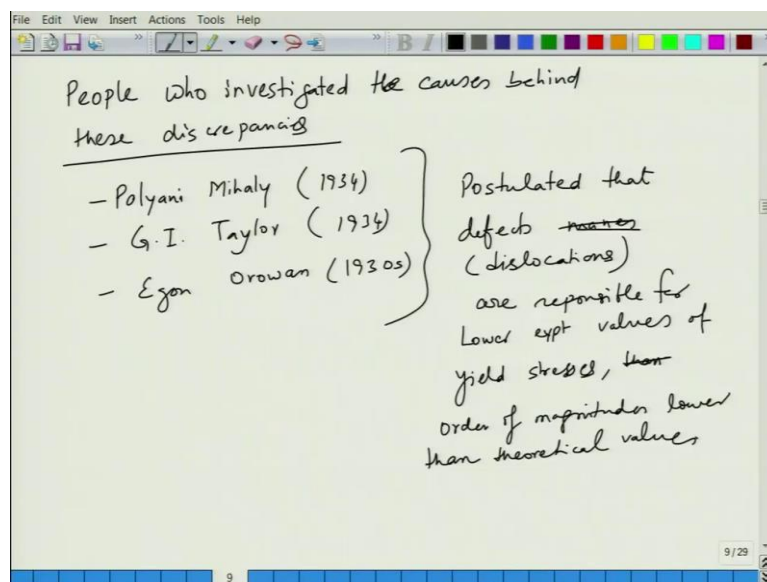 File Edit View Insert Actions Tools Help
People who investigated the causes behind
these discrepancies
- Polyani Mihaly (1934)
- G.I. Taylor (1934)
- Egon Orowan (1930s)
Postulated that
defects
(dislocations)
are reponsible for
Lower expt values of
yield stresses, than
order of magnitudes lower
than theoretical values
9/29
9